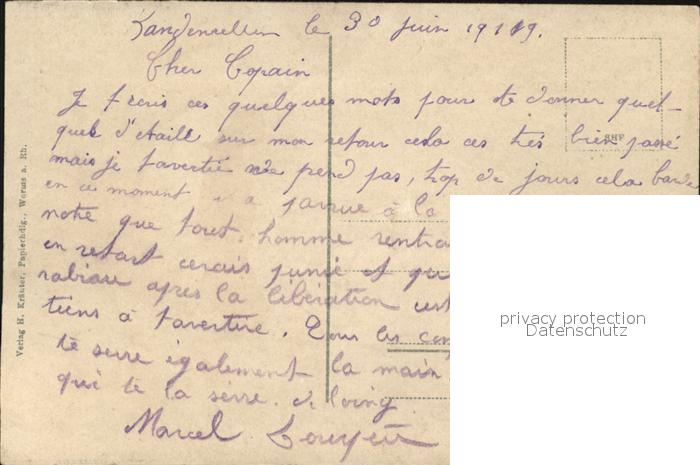 le 30 juin 1919.
Cher Copain
Je t'ecris ces quelques mots pour te donner quel-
ques d'etaill sur mon retour cela ces très bien passé
mais je tavertie ne prend pas, trop de jours cela barde
en ce moment a parrue à la
notte que tout homme rentra
en retart cerais punie et qu
rabiau après la libération cest
tiens à tavertire. Tous les
te serre également la main
qui te la serre. de loing.
Marcel
RHF
Verlag H. Kräuter, Papierhdlg., Worms a. Rh.
privacy protection
Datenschutz